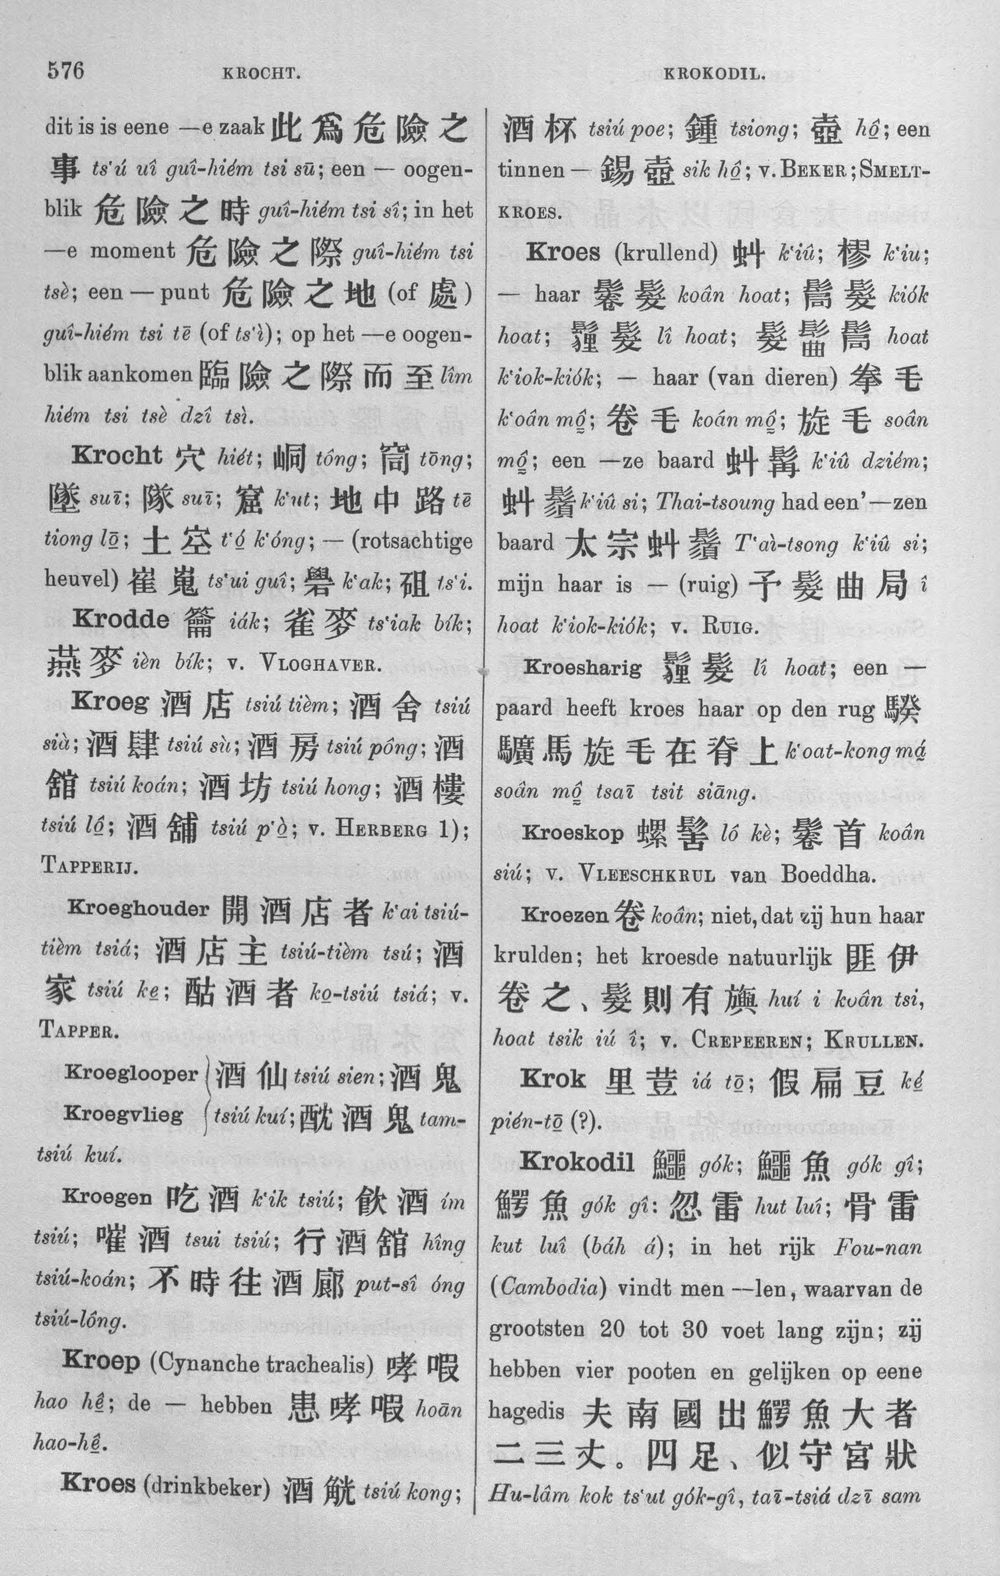 576
KROCHT.
KROKODIL.
dit is is eene —e zaak 此爲危險之
事 ts‘ú uî guî-hiém tsi sū; een — oogen-
blik 危險之時 guî-hiém tsi sî; in het
—e moment 危險之際 guî-hiém tsi
tsè; een — punt 危險之地 (of 處)
guî-hiém tsi tē (of ts‘ì); op het —e oogen-
blik aankomen 臨險之際而至 lîm
hiém tsi tsè dzî tsì.
Krocht 穴 hiét; 峒 tóng; 窗 tōng;
墜 suī; 隊 suī; 窟 k‘ut; 地中路 tē
tiong lō; 土空 t‘ó k‘óng; — (rotsachtige
heuvel) 崔嵬 ts‘ui guî; 礐 k‘ak; 砠 ts‘i.
Krodde 籥 iák; 雀麥 ts‘iak bík;
燕麥 ièn bík; v. VLOGHAVER.
Kroeg 酒店 tsiú tièm; 酒舍 tsiú
sià; 酒肆 tsiú sù; 酒房 tsiú pông; 酒
舘 tsiú koán; 酒坊 tsiú hong; 酒樓
tsiú lô; 酒舖 tsiú p‘ò; v. HERBERG 1);
TAPPERIJ.
Kroeghouder 開酒店者 k‘ai tsiú-
tièm tsiá; 酒店主 tsiú-tièm tsú; 酒
家 tsiú ke; 酤酒者 ko-tsiú tsiá; v.
TAPPER.
Kroeglooper 酒仙 tsiú sien; 酒鬼
Kroegvlieg tsiú kuí; 酖酒鬼 tam-
tsiú kuí.
Kroegen 吃酒 k‘ik tsiú; 飲酒 ím
tsiú; 嗺酒 tsui tsiú; 行酒舘 hîng
tsiú-koán; 不時往酒廊 put-sî óng
tsiú-lông.
Kroep (Cynanche trachealis) 哮呷
hao hê; de — hebben 患哮呷 hoān
hao-hê.
Kroes (drinkbeker) 酒觥 tsiú kong;
酒杯 tsiú poe; 鍾 tsiong; 壺 hô; een
tinnen — 錫壺 sik hô; v. BEKER; SMELT-
KROES.
Kroes (krullend) 虯 k‘iû; 樛 k‘iu;
— haar 鬈髮 koân hoat; 鬜髮 kiók
hoat; 氂髮 lî hoat; 髮髷鬜 hoat
k‘iok-kiók; — haar (van dieren) 拳毛
k‘oân mô; 卷毛 koán mô; 旋毛 soân
mô; een —ze baard 虯髯 k‘iû dziém;
虯鬚 k‘iû si; Thai-tsoung had een’ —zen
baard 太宗虯鬚 T‘aì-tsong k‘iû si;
mijn haar is — (ruig) 予髮曲局 î
hoat k‘iok-kiók; v. RUIG.
Kroesharig 氂髮 lî hoat; een —
paard heeft kroes haar op den rug 騤
驥馬旋毛在脊上 k‘oat-kong má
soân mô tsaī tsit siāng.
Kroeskop 螺髻 ló kè; 鬈首 koân
siú; v. VLEESCHKRUL van Boeddha.
Kroezen 卷 koân; niet, dat zij hun haar
krulden; het kroesde natuurlijk 匪伊
卷之、髮則有旟 huí i koân tsi,
hoat tsik iú î; v. CREPEEREN; KRULLEN.
Krok 野荳 iá tō; 假扁豆 ké
pién-tō (?).
Krokodil 鱷 gók; 鱷魚 gók gî;
鰐魚 gók gî: 忽雷 hut luî; 骨雷
kut luî (báh á); in het rijk Fou-nan
(Cambodia) vindt men —len, waarvan de
grootsten 20 tot 30 voet lang zijn; zij
hebben vier pooten en gelijken op eene
hagedis 夫南國出鰐魚大者
二三丈。四足、似守宮狀
Hu-lâm kok ts‘ut gók-gî, taī-tsiá dzī sam